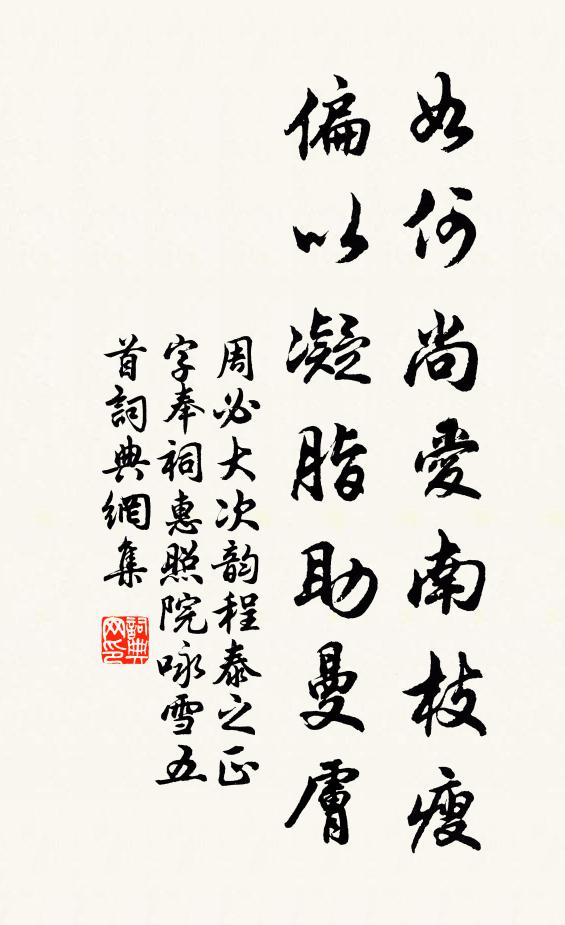 如何尚愛南枝瘦
偏以凝脂助曼膚
周必大次韵程泰之正
字奉祠惠照院咏雪五
首詞典網集
詞典网印